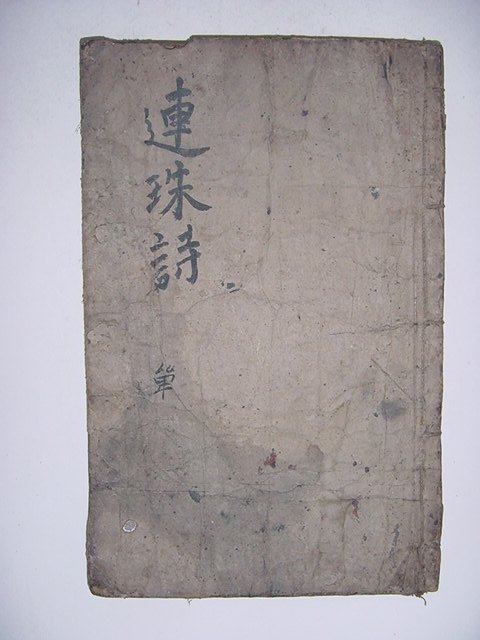 連珠詩
單